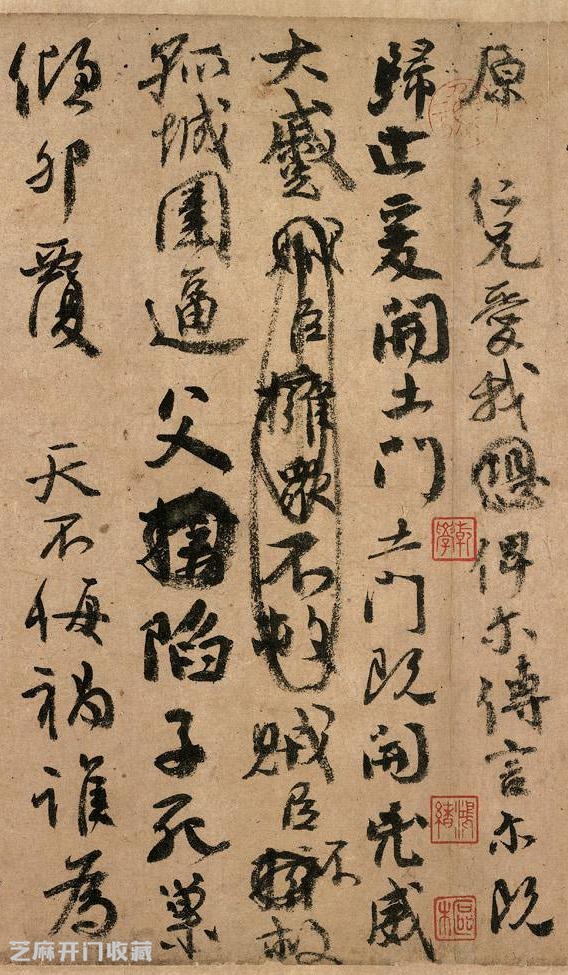 原 仁兄愛我恐俾尔傳言尔既
歸止爰開土門土門既開凶威
大蹙賊臣擁衆不救賊臣擁不救
孤城圍逼父陷子死巢
傾卵覆 天不悔禍誰為
乾學
鴻緒
芝麻开门收藏